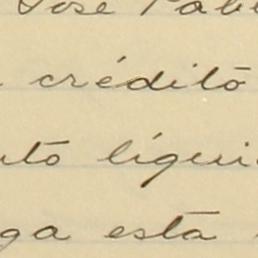 José Pabl
crédito
nto líqui
ga esta